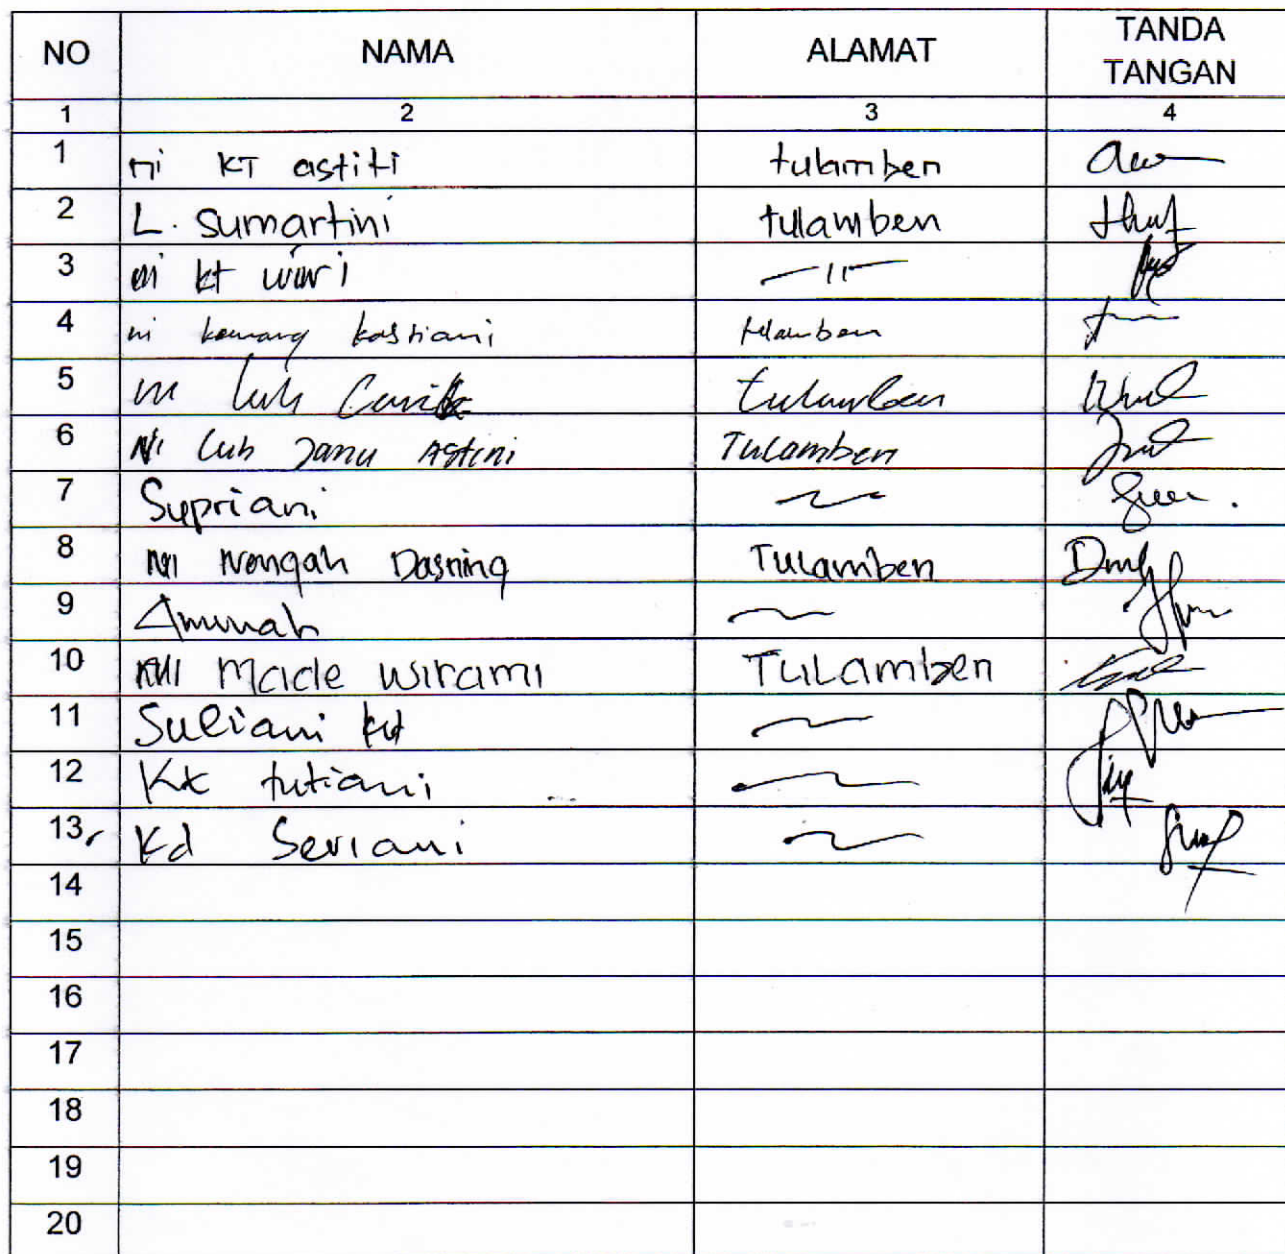 NO NAMA ALAMAT TANDA TANGAN
1 2 3 4
1 ni KT astiti tulamben
2 L. sumartini tulamben
3 ni kt wiri —11—
4 ni komang kastiani tulamben
5 ni luh tulamben
6 Ni luh Janu Astini Tulamben
7 Supriani
8 Ni Nengah Dasning Tulamben
9 Aminah
10 Ni Made wirami TULamben
11 Suliani kt
12 Kt tutiani
13, Kd Seriani
14
15
16
17
18
19
20